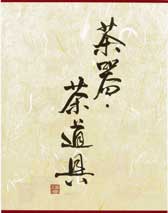 茶器・
茶道具